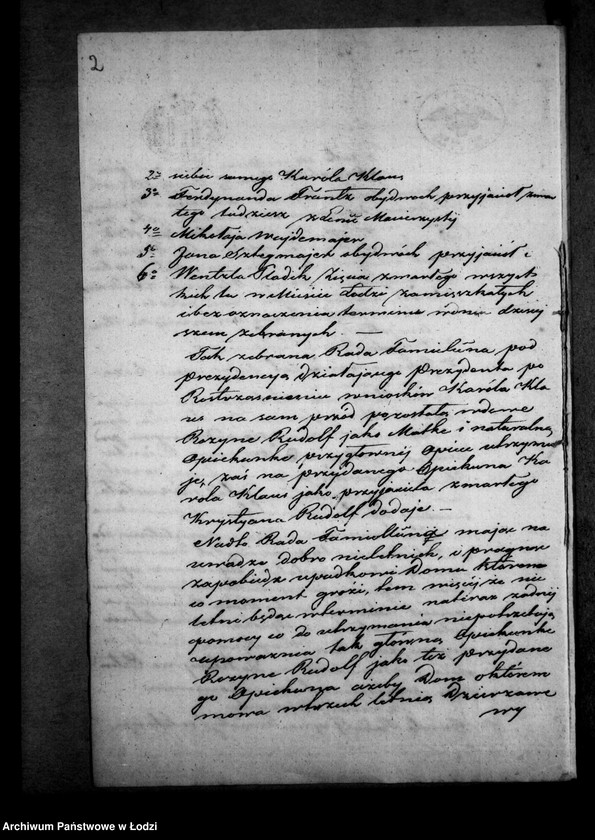 2
2o siebie samego Karóla Klaus
3o Ferdynanda Frantz obydwóch przyjaciół zmar
łego tudzież z Linii Macierzystej
4o Mikołaja Wejdemajer
5o Jana Sztegmajer obydwóch przyjaciół i
6o Wentzla Fladik Zięcia zmarłego wszyst
kich tu w Mieście Łodzi zamieszkałych
i bez oznaczenia terminu w dniu dzisiej
szem zebranych. —
Tak zebrana Rada Familijna pod
Prezydencyą działającego Prezydenta po
Roztrząśnieniu wniosków Karóla Kla
us na sam przód pozostałą wdowę
Rozynę Rudolf jako Matkę i naturalną
Opiekunkę przy głównej Opiece utrzymu
je, zaś na przydanego Opiekuna Ka
rola Klaus jako przyjaciela zmarłego
Krystyana Rudolf dodaje. —
Nadto Rada Familijna mając na
uwadze dobro nieletnich, i pragnąc
zapobiedz upadkowi Domu któren
co moment grozi, tem więcej że nie
letni będąc w terminie na teraz żadnej
pomocy co do utrzymania niepotrzebują
upoważnia tak główną Opiekunkę
Rozynę Rudolf jako też przydane
go Opiekuna ażeby Dom o którem
mowa w trzech letnią Dzierzawę
wy
Archiwum Państwowe w Łodzi